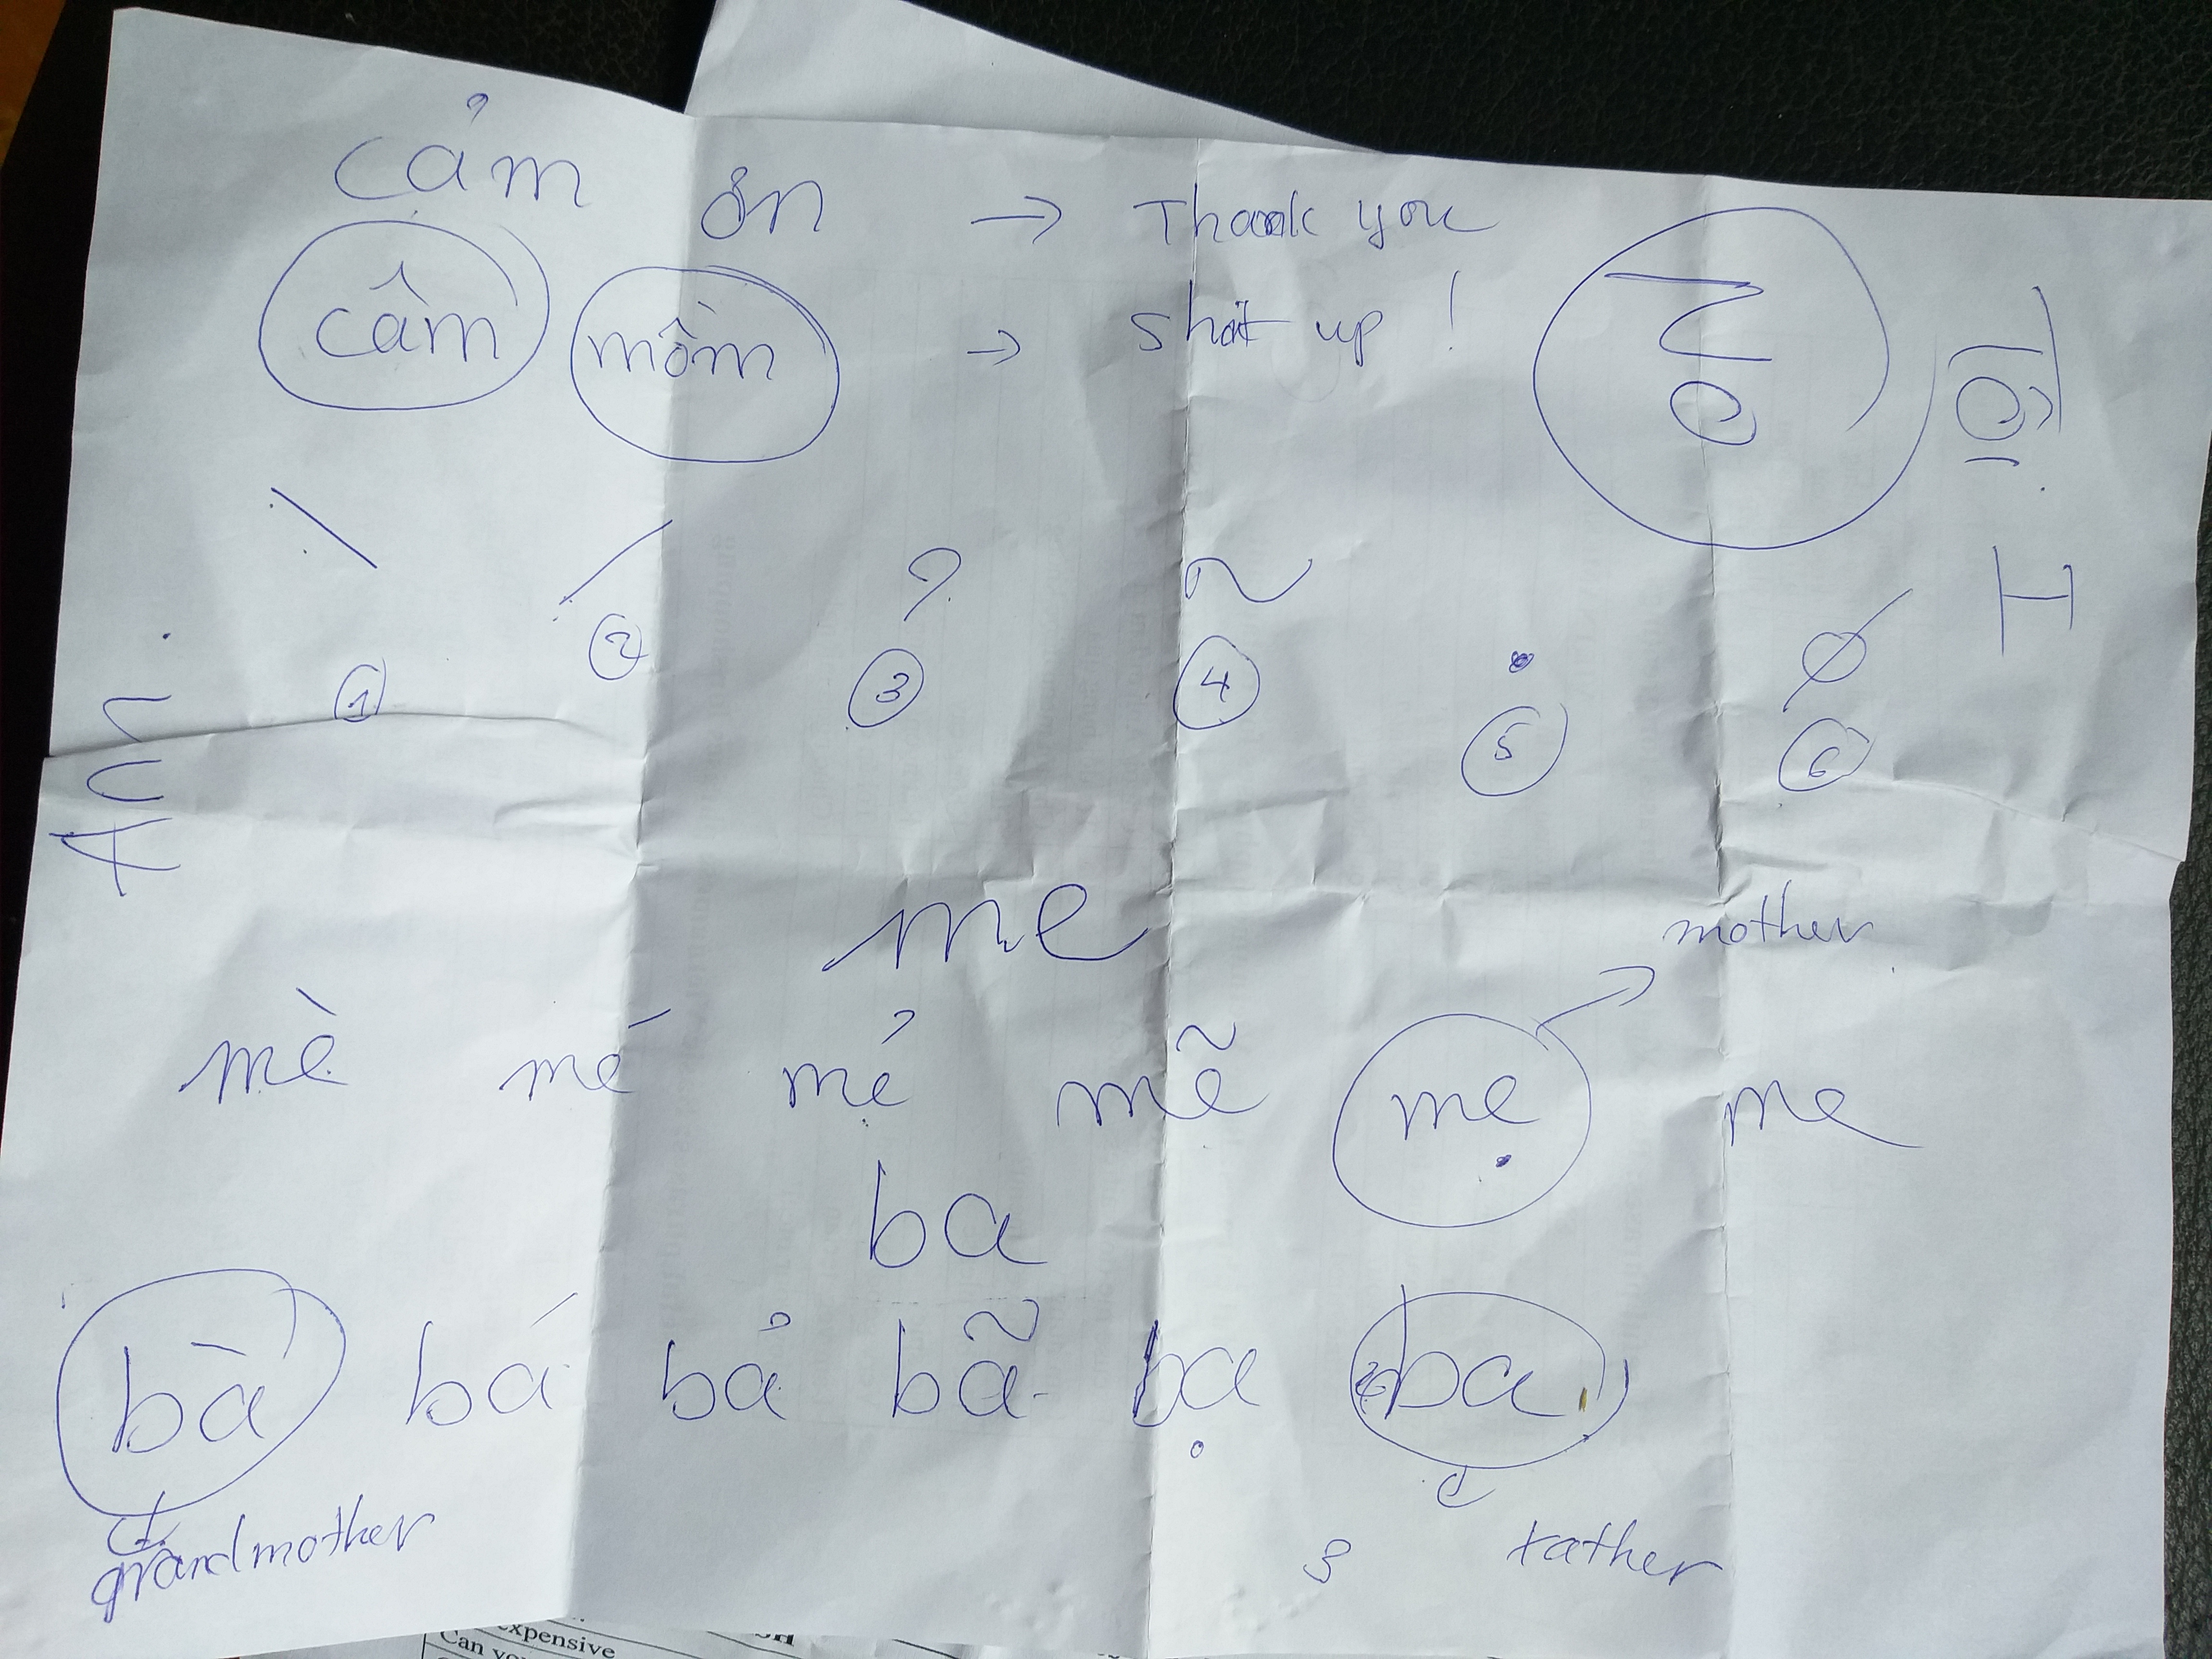 cảm ơn → Thank you
câm mồm → shut up !
\ / ? ~ . ∅
1 2 3 4 5 6
me
mother
mè mé mẻ mẽ mẹ me
ba
bà bá bả bã bạ ba
grandmother
father
expensive
Can you